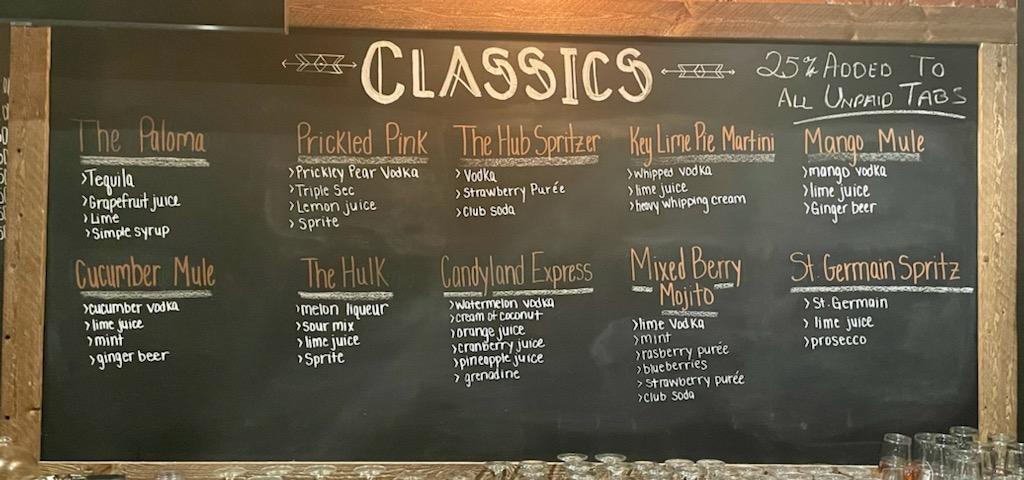 CLASSICS
25% ADDED TO
ALL UNPAID TABS
The Paloma
>Tequila
>Grapefruit juice
>Lime
>Simple syrup
Prickled Pink
>Prickley Pear Vodka
>Triple Sec
>Lemon juice
>Sprite
The Hub Spritzer
>Vodka
>Strawberry Purée
>Club soda
Key Lime Pie Martini
>whipped vodka
>lime juice
>heavy whipping cream
Mango Mule
>mango vodka
>lime juice
>Ginger beer
Cucumber Mule
>cucumber vodka
>lime juice
>mint
>ginger beer
The Hulk
>melon liqueur
>sour mix
>lime juice
>Sprite
Candyland Express
>watermelon vodka
>cream of coconut
>orange juice
>cranberry juice
>pineapple juice
>grenadine
Mixed Berry
Mojito
>lime vodka
>mint
>rasberry purée
>blueberries
>strawberry purée
>club soda
St. Germain Spritz
>St. Germain
>lime juice
>prosecco